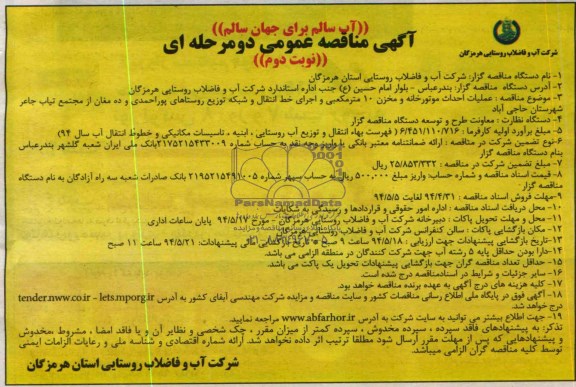 ((آب سالم برای جهان سالم))
آگهی مناقصه عمومی دومرحله ای
((نوبت دوم))
شرکت آب و فاضلاب روستایی هرمزگان
۱- نام دستگاه مناقصه گزار: شرکت آب و فاضلاب روستایی استان هرمزگان
۲- آدرس دستگاه مناقصه گزار: بندرعباس - بلوار امام حسین (ع) جنب اداره استاندارد شرکت آب و فاضلاب روستایی هرمزگان
۳- موضوع مناقصه : عملیات احداث موتورخانه و مخزن ۱۰ مترمکعبی و اجرای خط انتقال و شبکه توزیع روستاهای پوراحمدی و ده مغان از مجتمع تیاب جاعر
شهرستان حاجی آباد
۴- دستگاه نظارت : معاونت طرح و توسعه دستگاه مناقصه گزار
۵- مبلغ برآورد اولیه کارفرما : ۶/۴۵۱/۱۱۰/۷۱۶ ( فهرست بهاء انتقال و توزیع آب روستایی ، ابنیه ، تاسیسات مکانیکی و خطوط انتقال آب سال ۹۴)
۶-نوع تضمین شرکت در مناقصه : ارائه ضمانتنامه معتبر بانکی یا واریز وجه نقد به حساب شماره ۲۱۷۵۲۱۵۴۳۳۰۰۹ بانک ملی ایران شعبه گلشهر بندرعباس
بنام دستگاه مناقصه گزار
۷- مبلغ تضمین شرکت در مناقصه : ۲۵/۸۵۳/۳۳۲
۸- قیمت اسناد مناقصه و شماره حساب واریز مبلغ ۵۰۰,۰۰۰ ریال به حساب سپهر شماره ۲۱۹۵۲۱۵۴۹۱۰۰۵ بانک صادرات شعبه سه راه آزادگان به نام دستگاه
مناقصه گزار
۹-مهلت فروش اسناد مناقصه : ۹۴/۴/۳۱ لغایت ۹۴/۵/۵
۱۰- محل دریافت اسناد مناقصه : اداره امور حقوقی و قراردادها و رسیدگی به شکایات
۱۱- محل و مهلت تحویل پاکات : دبیرخانه شرکت آب و فاضلاب روستایی هرمزگان - مورخ ۹۴/۵/۱۷ پایان ساعات اداری
۱۲- مکان بازگشایی پاکات : سالن کنفرانس شرکت آب و فاضلاب روستایی هرمزگان
۱۳-تاریخ بازگشایی پیشنهادات جهت ارزیابی : ۹۴/۵/۱۸ ساعت ۹ صبح تاریخ بازگشایی مالی پیشنهادات: ۹۴/۵/۲۱ ساعت ۱۱ صبح
۱۴-دارا بودن حداقل پایه ۵ رشته آب جهت شرکت کنندگان در منطقه الزامی می باشد.
۱۵- حداقل تعداد مناقصه گران جهت بازگشایی پیشنهادات تحویل یک پاکت می باشد.
۱۶- سایر جزئیات و شرایط در اسنادمناقصه درج شده است.
۱۷- کلیه هزینه های درج آگهی به عهده برنده مناقصه خواهد بود.
۱۸- آگهی فوق در پایگاه ملی اطلاع رسانی مناقصات کشور و سایت مناقصه و مزایده شرکت مهندسی آبفای کشور به آدرس tender.nww.co.ir - Iets.mporg.ir
درج خواهد شد.
۱۹- جهت اطلاع بیشتر می توانید به سایت شرکت به آدرس www.abfarhor.ir مراجعه نمایید
تذکر: به پیشنهادهای فاقد سپرده ، سپرده مخدوش ، سپرده کمتر از میزان مقرر ، چک شخصی و نظایر آن و یا فاقد امضا ، مشروط ،مخدوش
و پیشنهادهایی که پس از مهلت مقرر ارسال شود مطلقا ترتیب اثر داده نخواهد شد. ارائه شماره اقتصادی و شناسه ملی و رعایت الزامات ایمنی
توسط کلیه مناقصه گران الزامی میباشد.
شرکت آب و فاضلاب روستایی استان هرمزگان
ParsNamadData